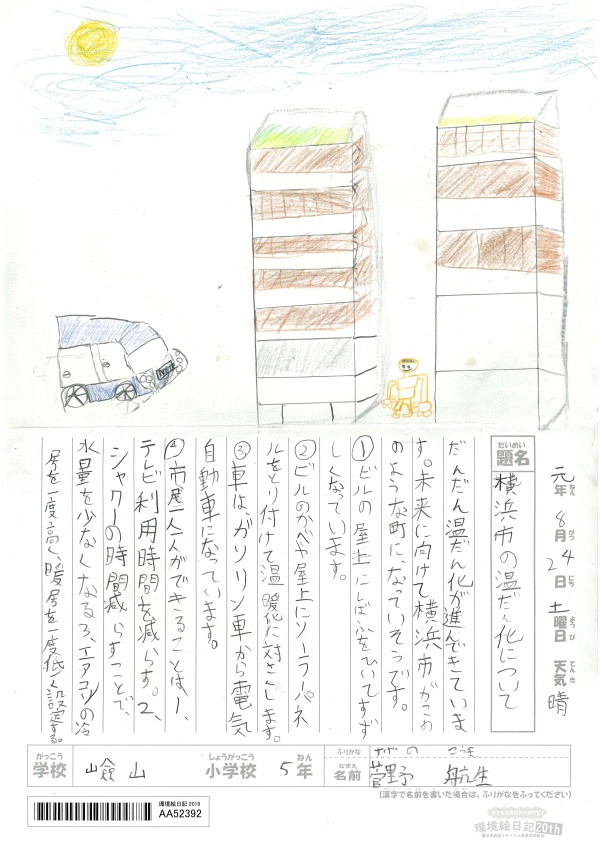 元年 8月 24日 土曜日 天気 晴
ねん がつ にち ようび てんき
だいめい
題名
横浜市の温だん化について
だんだん温だん化が進んできていま
す。未来に向けて横浜市がこ
のような町になっていそうです。
①ビルの屋上にしばふをひいてすず
しくなっています。
②ビルのかべや屋上にソーラーパネ
ルをとり付けて温暖化に対さくします。
③車は、ガソリン車から電気
自動車になっています。
④市民一人一人ができることは、1、
テレビ利用時間を減らす。2、
シャワーの時間減らすことで、
水量を少なくなる3、エアコンの冷
房を一度高く、暖房を一度低く設定する。
がっこう
学校
山
しょうがっこう
小学校
5年
ねん
ふりがな
すがの こうき
なまえ
名前
菅野 航生
(漢字で名前を書いた場合は、ふりがなをふってください)
環境絵日記 2019
AA52392
環境絵日記20th